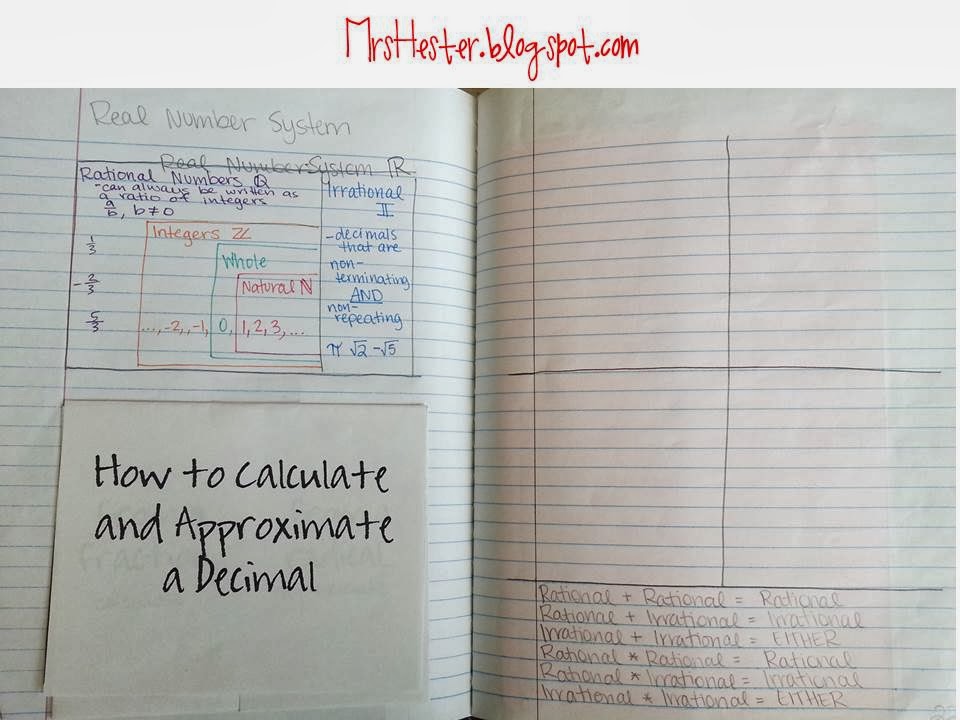 MrsHester.blogspot.com
Real Number System
Real Number System ℝ
Rational Numbers ℚ
-can always be written as
a ratio of integers
a/b, b≠0
1/3
-2/3
5/3
Integers ℤ
Whole
Natural ℕ
..., -2, -1, 0, 1, 2, 3, ...
Irrational
𝕀
-decimals
that are
non-
terminating
AND
non-
repeating
π √2 -√5
How to Calculate
and Approximate
a Decimal
Rational + Rational = Rational
Rational + Irrational = Irrational
Irrational + Irrational = EITHER
Rational * Rational = Rational
Rational * Irrational = Irrational
Irrational * Irrational = EITHER